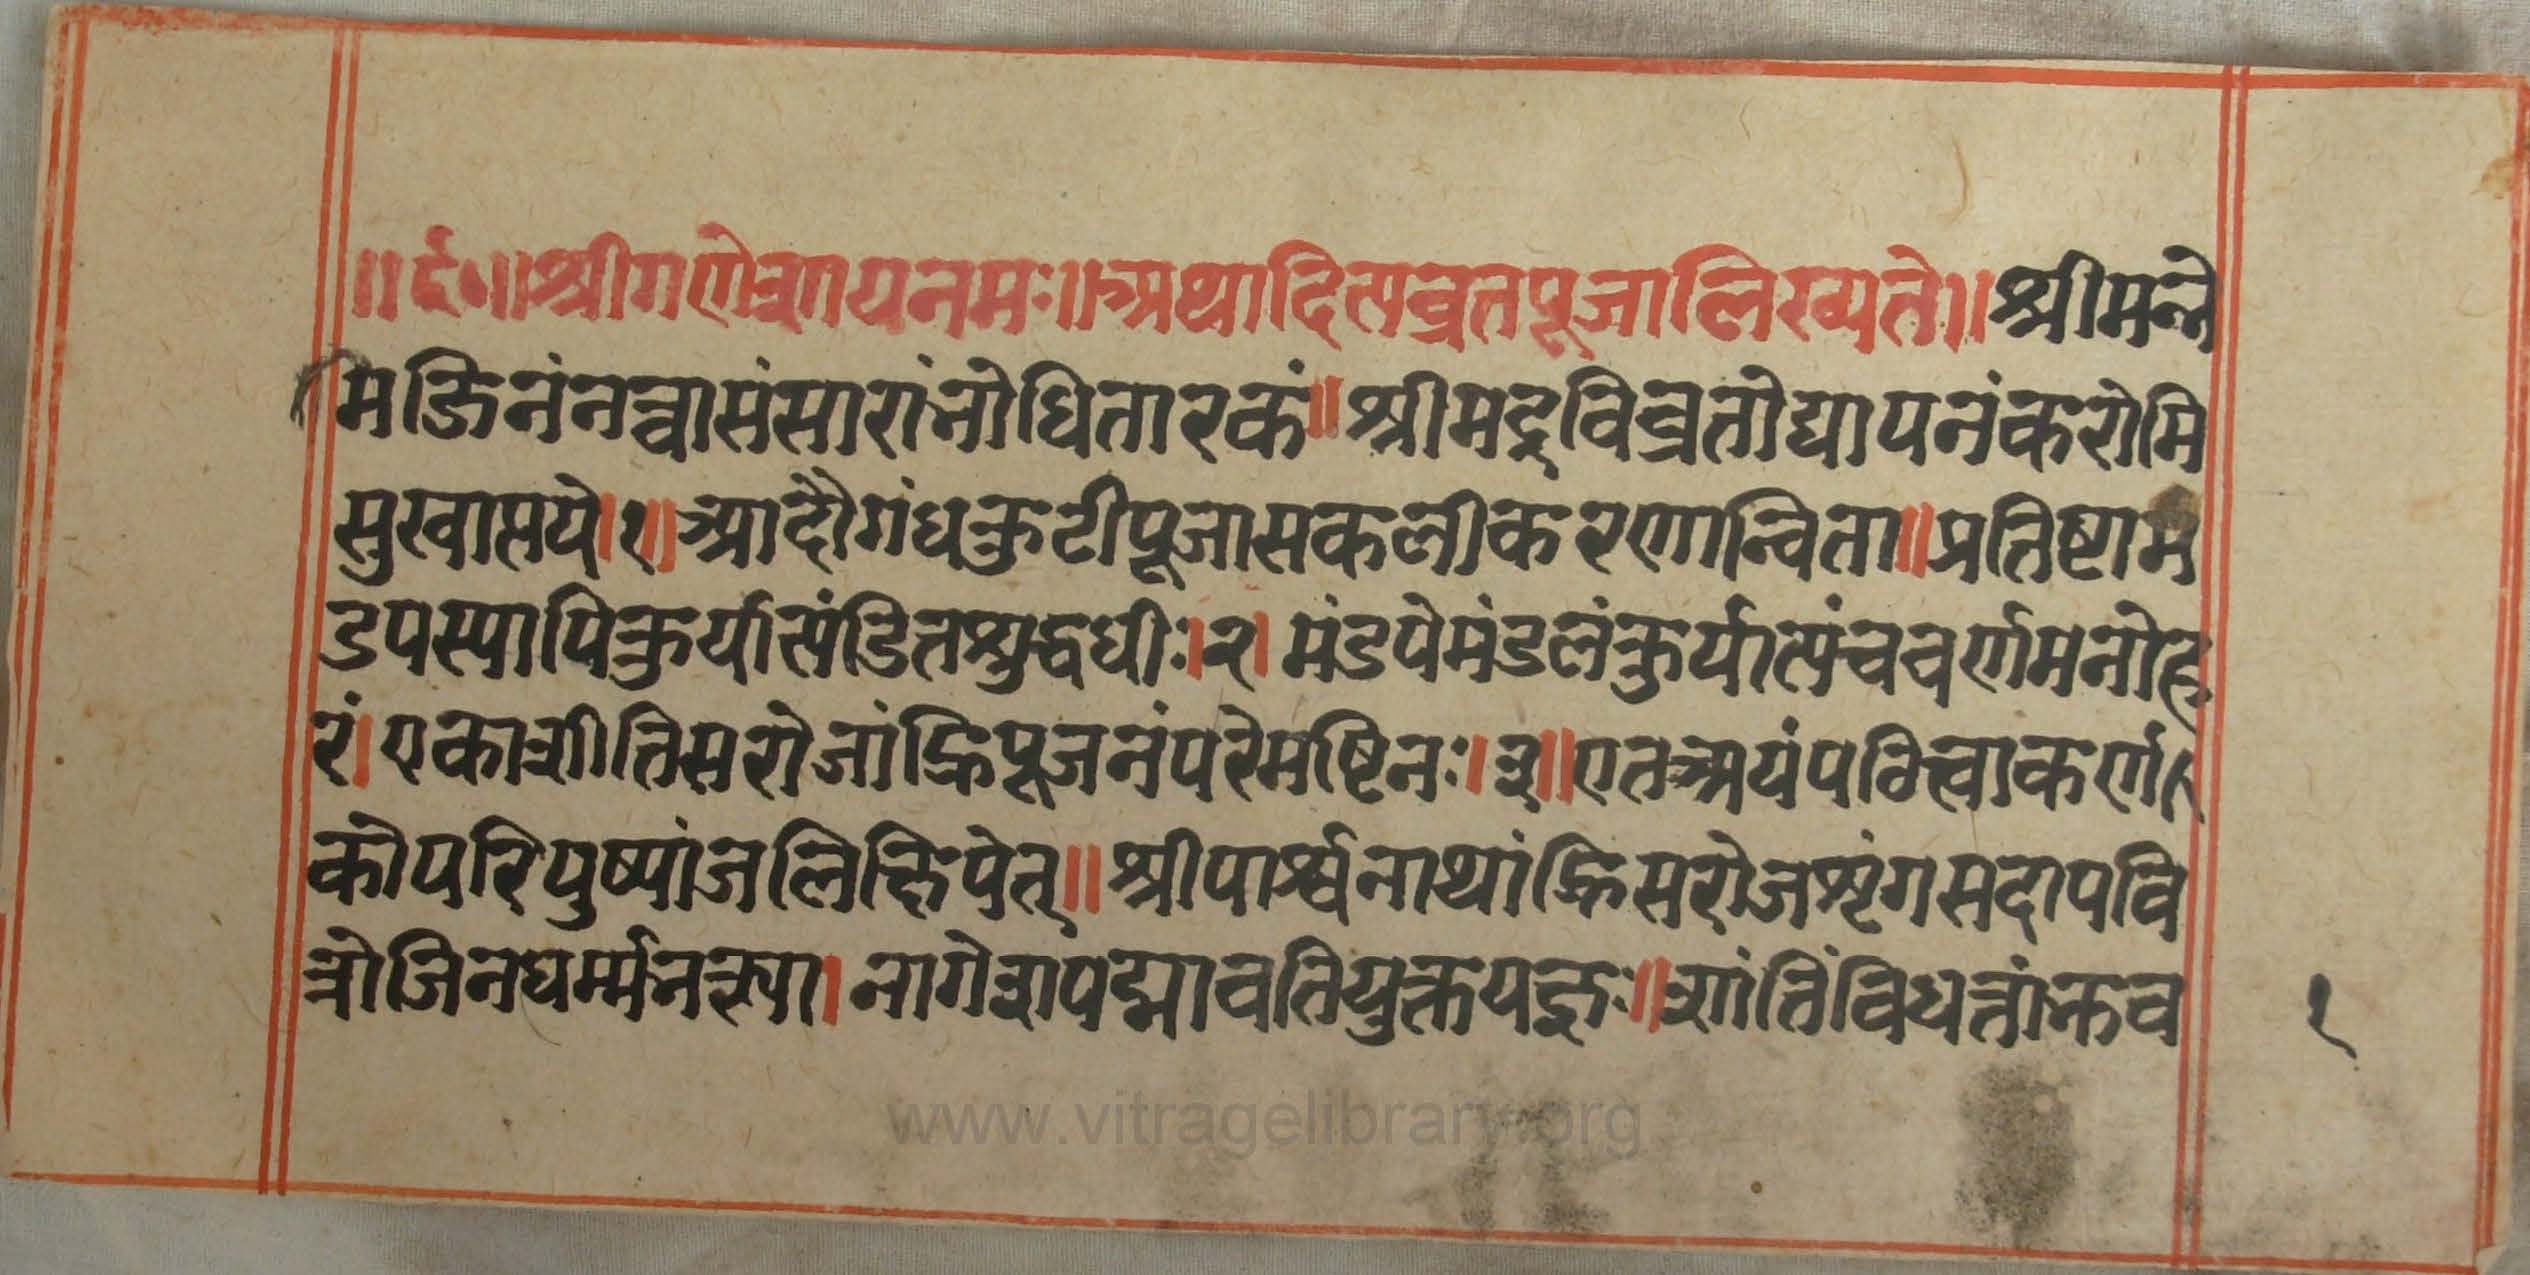 ॥ ६० ॥ श्रीगणेशायनमः ॥ अथादित्यव्रतपूजालिख्यते ॥ श्रीमन्ने
मिजिनंनत्वासंसारांभोधितारकं ॥ श्रीमद्रविव्रतोद्यापनंकरोमि
सुखाप्तये । १ ॥ आदौगंधकुटीपूजासकलीकरणान्विता ॥ प्रतिष्टाम
डपस्यापिकुर्यात्पंडितशुद्धधीः । २ । मंडपेमंडलंकुर्यात्पंचवर्णमनोह
रं । एकाशीतिसरोजांह्रिपूजनंपरमेष्टिनः । ३ ॥ एतत्त्रयंपठित्वाकर्णि
कोपरिपुष्पांजलिंक्षिपेत् ॥ श्रीपार्श्वनाथांह्रिसरोजभृंगसदापवि
त्रोजिनधर्म्मभक्त्या । नागेशपद्मावतियुक्तयक्षः ॥ शांतिंविधत्तांभव
१
www.vitragelibrary.org